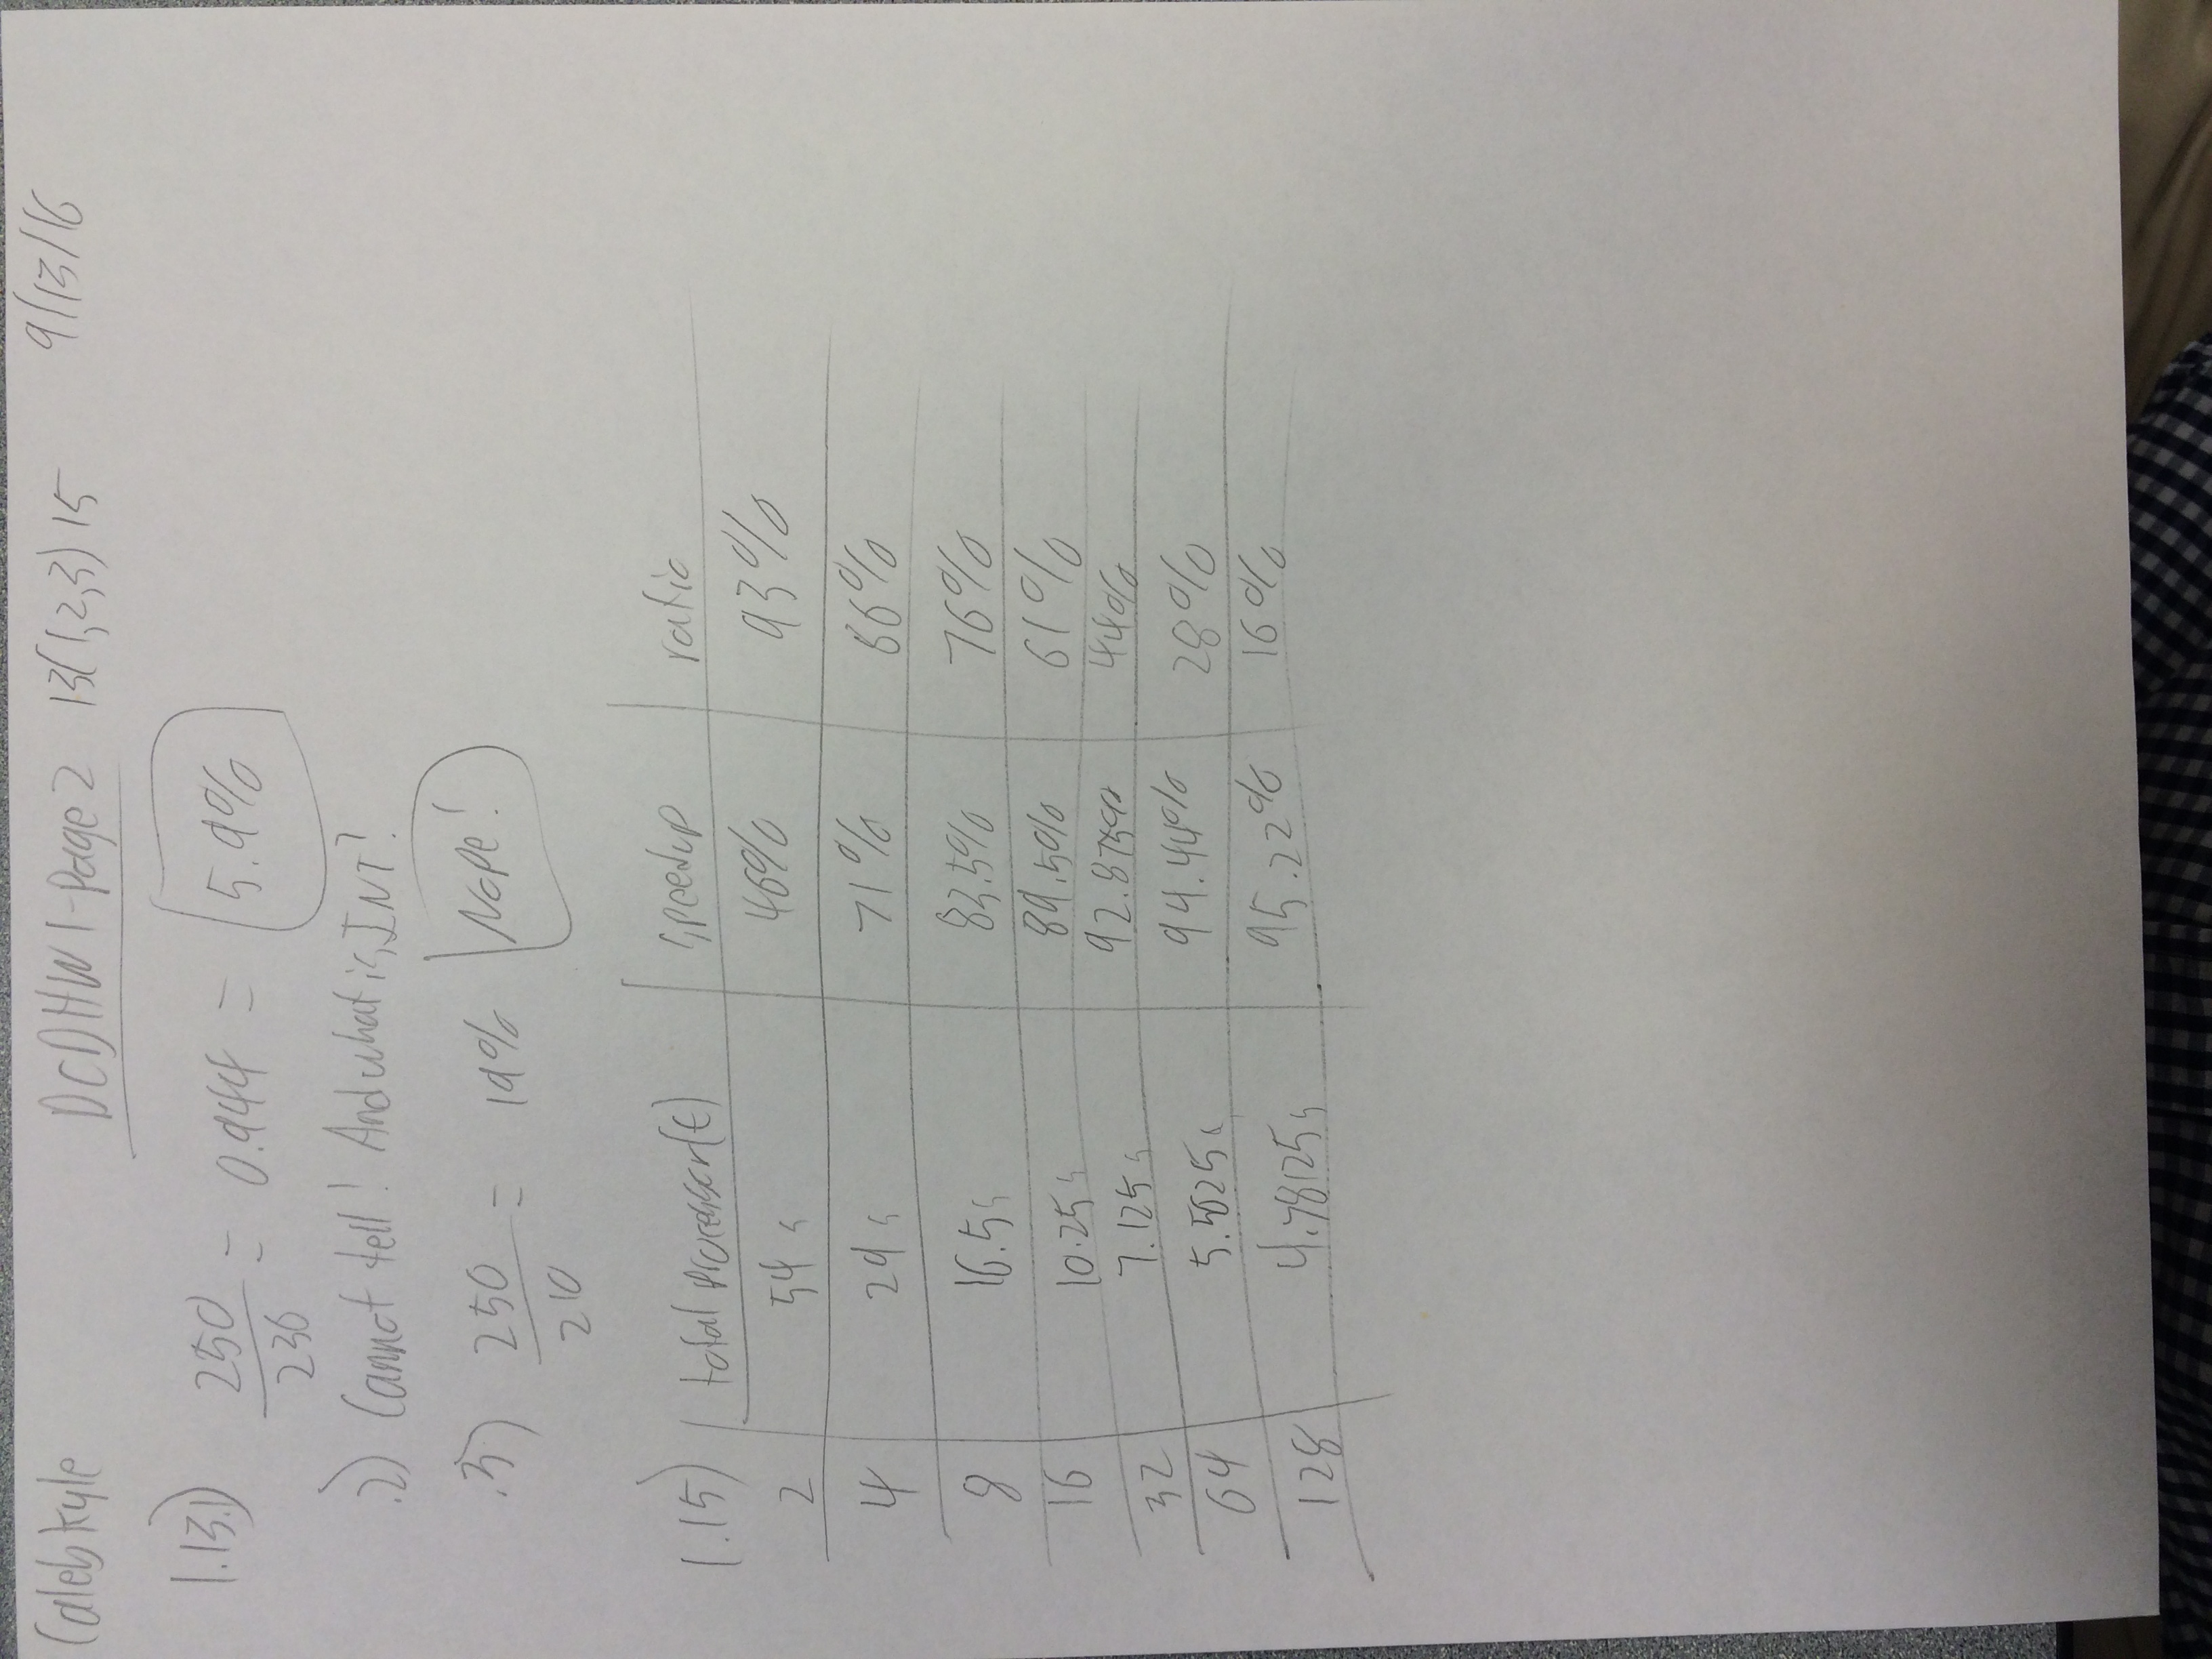 Caleb Kyle DCD HW 1-Page 2 13(1,2,3) 15 9/13/16
1.13.1) 250/236 = 0.944 = 5.9%
.2) Cannot tell! And what is INT?
.3) 250/210 = 19% Nope!
1.15) total processor(t) speedup ratio
2 54s 46% 93%
4 29s 71% 86%
8 16.5s 83.5% 76%
16 10.25s 89.5% 61%
32 7.125s 92.875% 44%
64 94.44% 28%
128 4.78125s 95.22% 16%